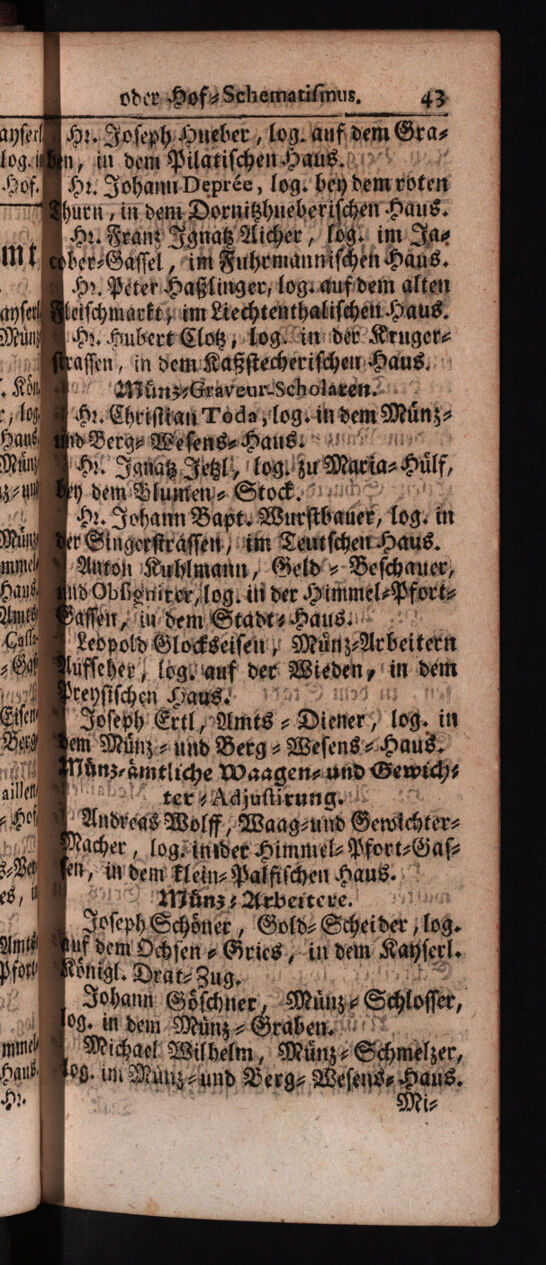 oder Hof-Schematismus. 43
Hr. Joseph Hueber, log. auf dem Gra-
ben, in dem Pilatischen Haus.
Hr. Johann Deprée, log. bey dem roten
Thurn, in dem Dornitzhueberischen Haus.
Hr. Franz Ignatz Aicher, log. im Ja-
cober-Gassel, im Fuhrmannischen Haus.
Hr. Peter Haßlinger, log. auf dem alten
Fleischmarkt, im Liechtenthalischen Haus.
Hr. Hubert Clotz, log. in der Kruger-
strassen, in dem Kaßstecherischen Haus.
Münz-Graveur-Scholaren.
Hr. Christian Toda, log. in dem Münz-
und Berg-Wesens-Haus.
Hr. Ignatz Jetzl, log. zu Maria-Hülf,
bey dem Blumen-Stock.
Hr. Johann Bapt. Wurstbauer, log. in
der Singerstrassen, im Teutschen Haus.
Anton Kuhlmann, Geld-Beschauer,
und Obsignirer, log. in der Himmel-Pfort-
Gassen, in dem Stadt-Haus.
Leopold Glockseisen, Münz-Arbeitern
Aufseher, log. auf der Wieden, in dem
Preysischen Haus.
Joseph Ertl, Amts-Diener, log. in
dem Münz- und Berg-Wesens-Haus.
Münz-ämtliche Waagen- und Gewich-
ter-Adjustirung.
Andreas Wolff, Waag- und Gewichter-
Macher, log. in der Himmel-Pfort-Gas-
sen, in dem klein-Palfischen Haus.
Münz-Arbeitere.
Joseph Schöner, Gold-Scheider, log.
auf dem Ochsen-Gries, in dem Kayserl.
Königl. Drat-Zug.
Johann Göschner, Münz-Schlosser,
log. in dem Münz-Graben.
Michael Wilhelm, Münz-Schmelzer,
log. im Münz- und Berg-Wesens-Haus.
Mi-